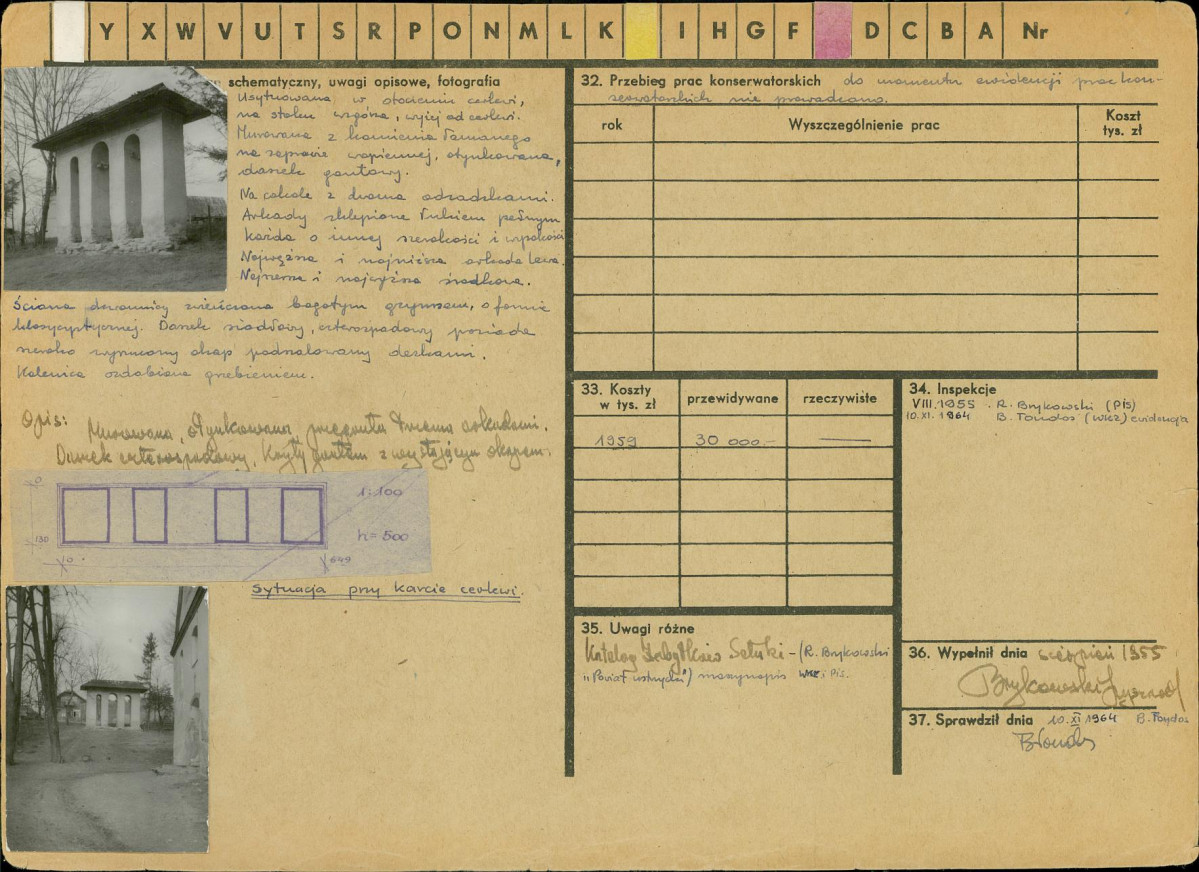 Y X W V U T S R P O N M L K I H G F D C B A Nr
schematyczny, uwagi opisowe, fotografia
Usytuowana w otoczeniu cerkwi,
na stoku wzgórza, wyżej od cerkwi.
Murowana z kamienia łamanego
na zaprawie wapiennej, otynkowana,
daszek gontowy.
Na cokole z dwoma odsadzkami.
Arkady sklepione łukiem pełnym
każda o innej szerokości i wysokości
Najwęższa i najniższa arkada lewa.
Najszersza i najwyższa środkowa.
Ściana dzwonnicy zwieńczona bogatym gzymsem, o formie
klasycystycznej. Daszek siodłowy, czterospadowy posiada
szeroko wysunięty okap podszalowany deskami.
Kalenica ozdobiona grzebieniem.
Opis: Murowana, otynkowana, przeproszta trzema arkadami.
Daszek czterospadowy. Kryty gontem z wystającym okapem.
0
130
0
649
1:100
h = 500
Sytuacja przy karcie cerkwi.
32. Przebieg prac konserwatorskich do momentu ewidencji prac kon-
serwatorskich nie prowadzono.
rok
Wyszczególnienie prac
Koszt
tys. zł
33. Koszty
w tys. zł
przewidywane
rzeczywiste
1959 30 000.-
34. Inspekcje
VIII.1955. R. Brykowski (PIS)
10.XI.1964 B. Tondos (WKZ) ewidencja
35. Uwagi różne
Katalog Zabytków Sztuki - (R. Brykowski
„Powiat ustrzycki") maszynopis WKZ i PIS.
36. Wypełnił dnia sierpień 1955
Brykowski Ryszard
37. Sprawdził dnia 10.XI 1964 B. Tondos
BTondos